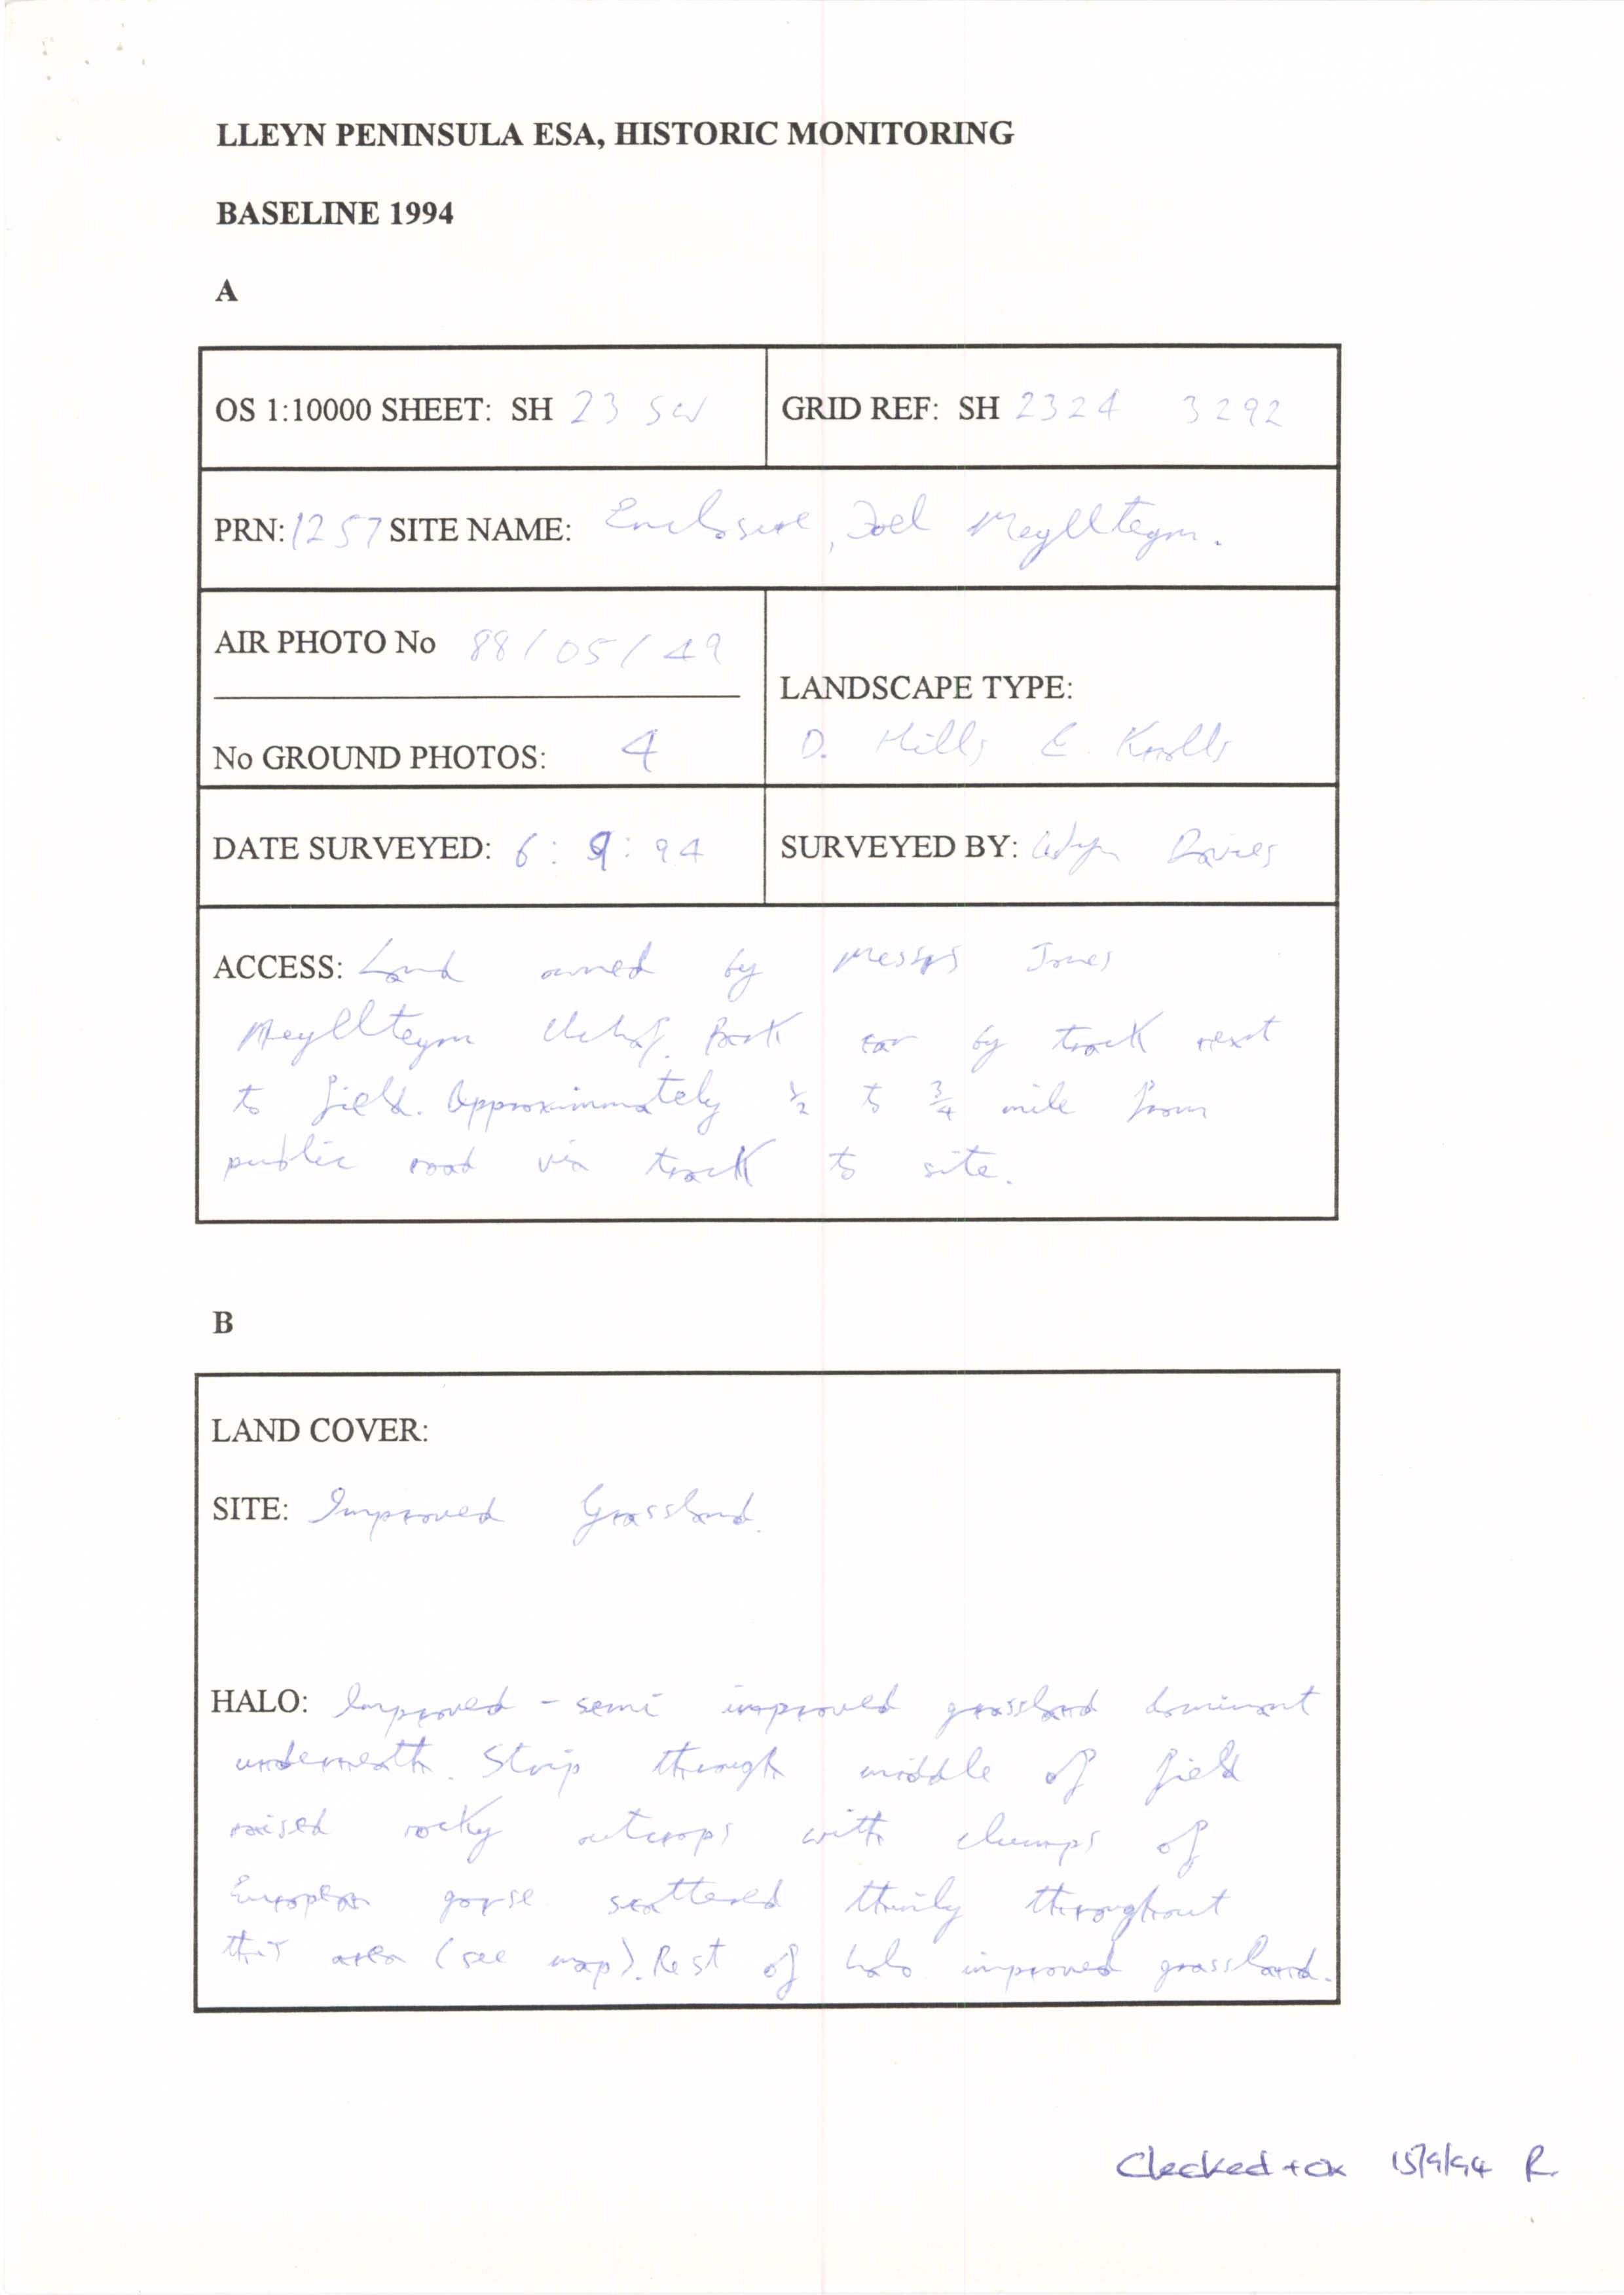 LLEYN PENINSULA ESA, HISTORIC MONITORING
BASELINE 1994
A
OS 1:10000 SHEET: SH 23 SW
GRID REF: SH 2324 3292
PRN: 1257 SITE NAME: Enclosure, Foel Meyllteyrn.
AIR PHOTO No 88/05/49
No GROUND PHOTOS: 4
LANDSCAPE TYPE:
D. Hills & Knolls
DATE SURVEYED: 6:9:94
SURVEYED BY: Davies
ACCESS: Land owned by Messrs Jones
Meyllteyrn Uchaf. Park car by track next
to field. Approximmately 1/2 to 3/4 mile from
public road via track to site.
B
LAND COVER:
SITE: Improved Grassland.
HALO: Improved - semi improved grassland dominant
underneath. Strip through middle of field
raised rocky outcrops with clumps of
European gorse scattered thinly throughout
this area (see map). Rest of halo improved grassland.
Checked + OK 15/9/94 R.